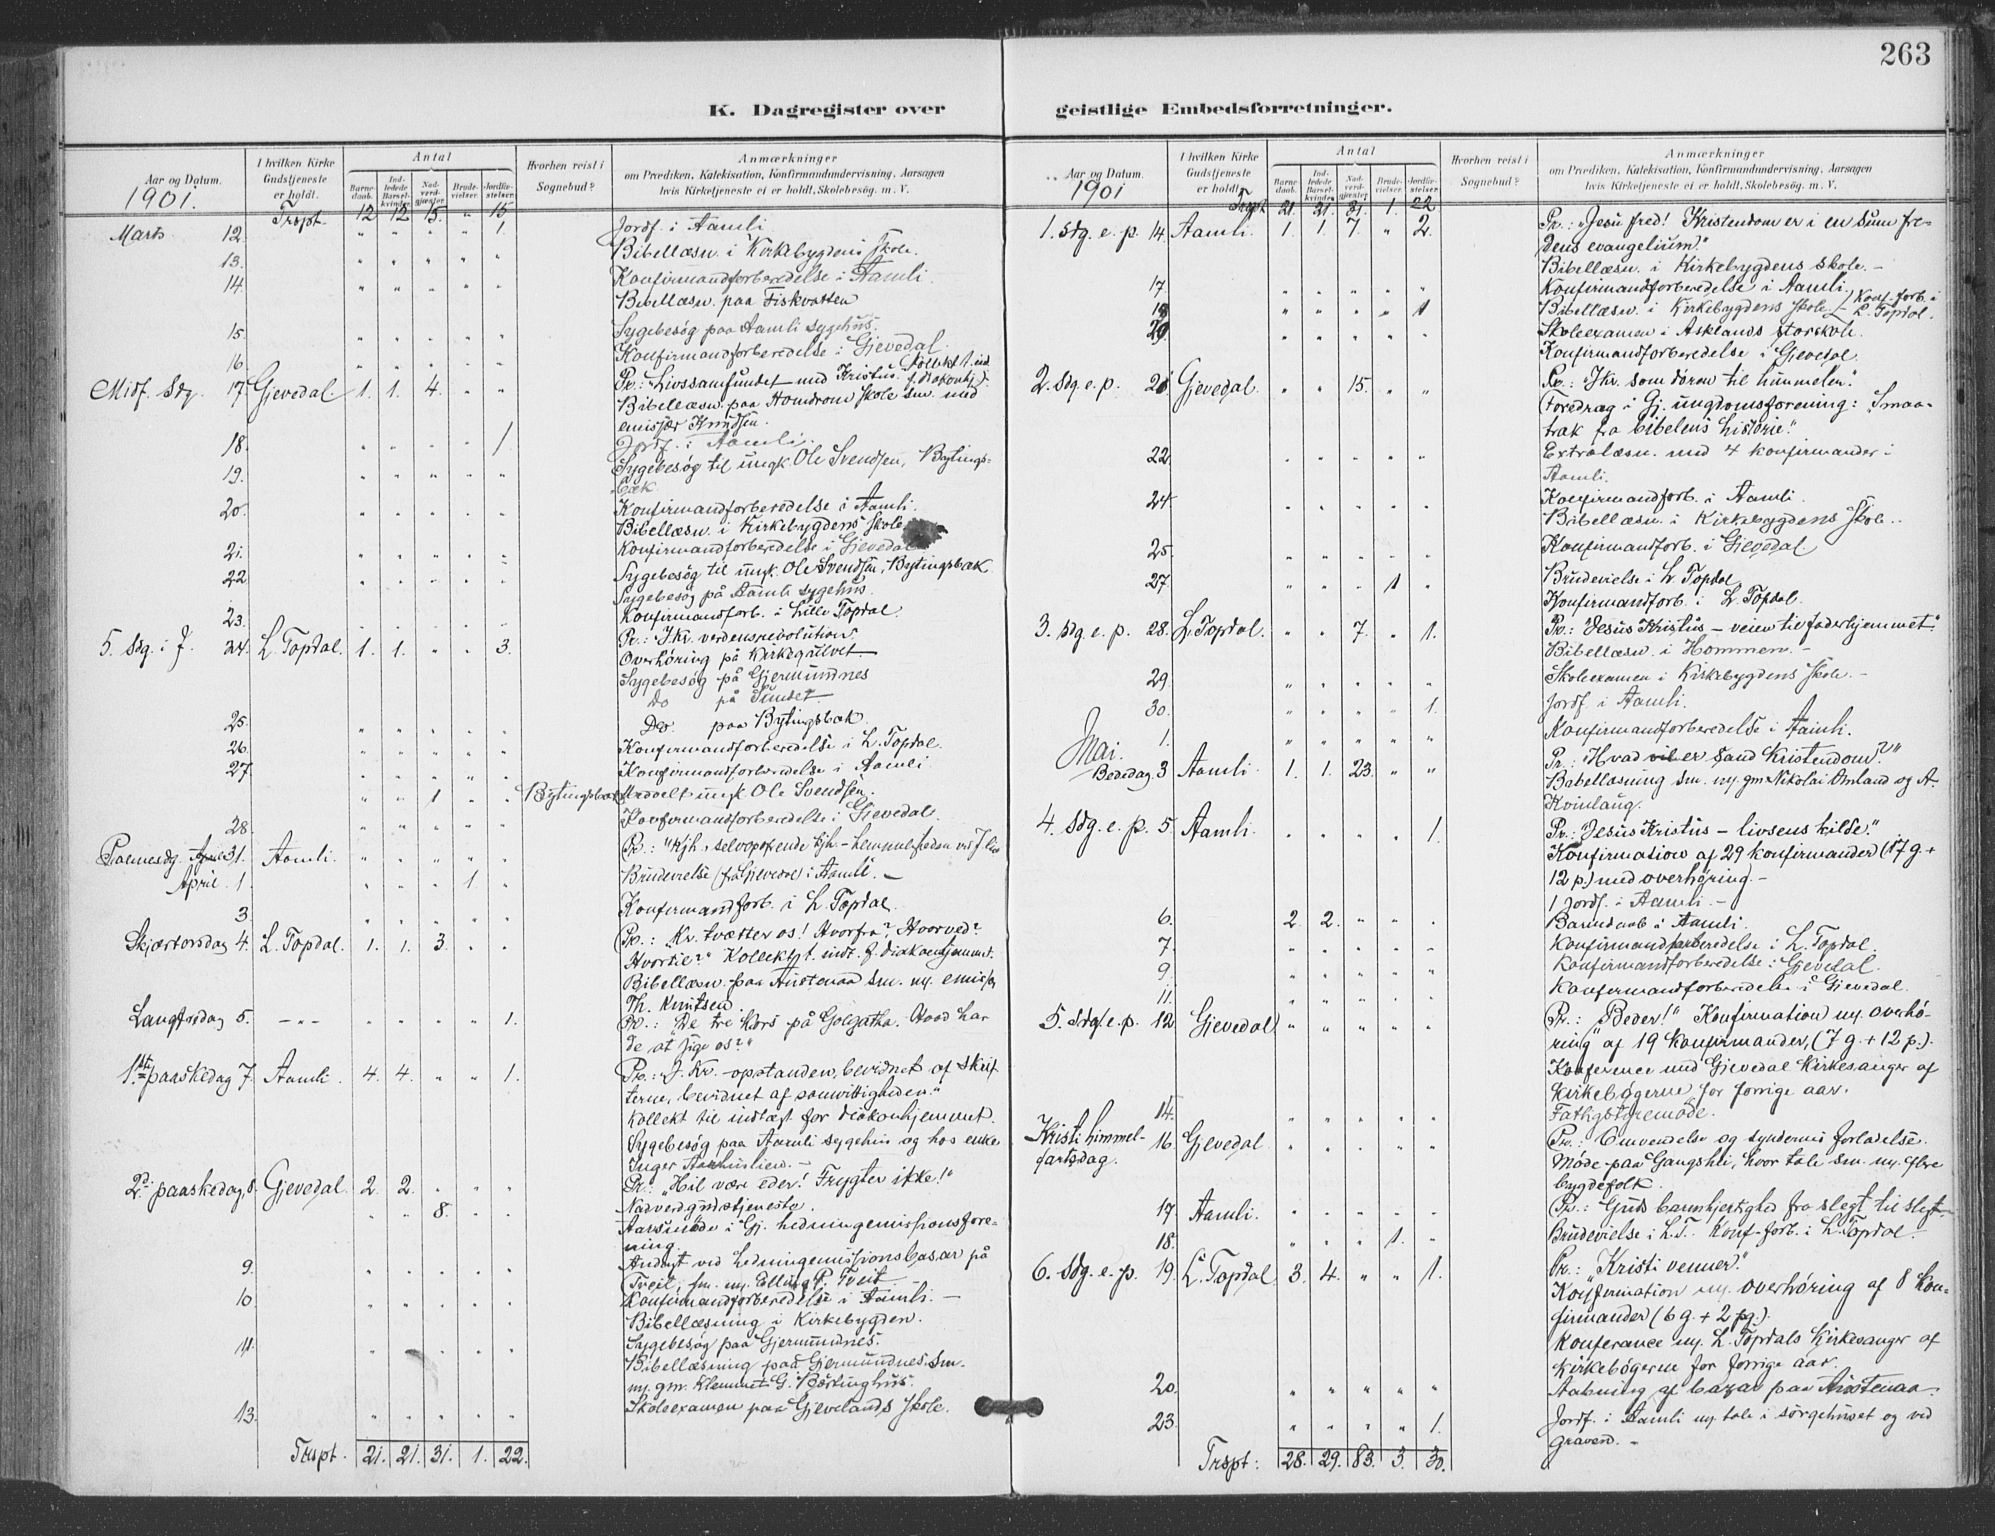 263
K. Dagregister over geistlige Embedsforretninger.
Aar og Datum.
1901.
I hvilken Kirke Gudstjeneste er holdt.
Antal
Barnedaab.
Indledede Barselkvinder.
Nadverdgjæster.
Brudevielser.
Jordfæstelser.
Hvorhen reist i Sognebud?
Anmærkninger
om Prædiken, Katekisation, Konfirmandundervisning, Aarsagen
hvis Kirketjeneste ei er holdt, Skolebesøg. m. V.
Trspt 12 12 15. " 15
Marts 12. " " " " 1. Jordf. i Aamli
Bibellæsn. i Kirkebygdens Skole.
13. " " " " " Konfirmandforberedelse i Aamli.
14. " " " " " Bibellæsn. paa Fiskvatten
Sygebesøg paa Aamli sygehus.
15. " " " " " Konfirmandforberedelse i Gjevedal.
16. " " " " "
Midf. Sdg. 17. Gjevedal. 1. 1. 4. " " Pr.: Livssamfundet med Kristus. (Kollekt t. ind f. diakonhj.)
Bibellæsn. paa Homdrom Skole sm. med
emissær Knudsen.
18. " " " " 1. Jordf. i Aamli.
19. " " " " " Sygebesøg til ungk. Ole Svendsen, Bytings-
bæk.
20. " " " " " Konfirmandforberedelse i Aamli.
Bibellæsn. i Kirkebygdens Skole
21. " " " " " Konfirmandforberedelse i Gjevedal
22 " " " " " Sygebesøg til ungk. Ole Svendsen, Bytingsbæk
Sygebesøg på Aamli sygehus.
23. " " " " " Konfirmandforb. i Lille Topdal.
5. Sdg. i f. 24. L. Topdal. 1. 1. " " 3. Pr.: J. Kr. verdensrevolution.
Overhøring på Kirkegulvet.
Sygebesøg på Gjermundnes
Do på Sundet
25. " " " " " Do paa Bytingsbæk.
26. " " " " " Konfirmandforberedelse i L. Topdal.
27. " " " " " Konfirmandforberedelse i Aamli
" " 1 " " Bytingsbæk Ungk Ole Svendsen.
28. Konfirmandforberedelse i Gjevedal.
Palmesdg. 31. Aamli. " " " " "
April. 1. " " " 1 " Brudevielse (fra Gjevedal) i Aamli. —
3. " " " " " Konfirmandforb. i L. Topdal.
Skjærtorsdag 4. L. Topdal. 1. 1. 3. " " Pr.: "Kr. tvætter os! Hvorfra? Hvorved?
Hvortil?" Kollekt t. indt. f. diakonhjemmet.
Bibellæsn. paa Austenaa sm. m. emissær
Th. Knutsen.
Langfredag 5. —"— " " " " 1. Pr.: "De tre Kors på Golgatha. Hvad har
de at sige os?"
1ste paaskedag 7. Aamli. 4. 4. " " 1. Pr.: J. Kr. opstanden, bevidnet af skrif-
terne, bevidnet af samvittigheden."
Kollekt til indtægt for diakonhjemmet.
Sygebesøg paa Aamli sygehus og hos enke
Inger
2d. paaskedag 8. Gjevedal. 2. 2. " " " Pr.: "Hil være eder! Frygter ikke!"
" " 8. " " Nadverdgudstjeneste.
Aarsmøde i Gj. hedningemissionsfore-
ning.
9. " " " " " Andagt ved hedningemissionsbasar på
Tveit, sm. m. Elling P. Tveit
10. " " " " " Konfirmandforberedelse i Aamli. —
Bibellæsning i Kirkebygden.
11. " " " " " Sygebesøg paa Gjermundnes.
Bibellæsning paa Gjermundnes sm.
m. gm. Klemmet G. Børtinghus.
13. " " " " " Skoleexamen paa Gjevelands Skole.
Trspt. 21. 21. 31. 1. 22.
Aar og Datum.
1901
I hvilken Kirke Gudstjeneste er holdt.
Antal
Barnedaab.
Indledede Barselkvinder.
Nadverdgjæster.
Brudevielser.
Jordfæstelser.
Hvorhen reist i Sognebud?
Anmærkninger
om Prædiken, Katekisation, Konfirmandundervisning, Aarsagen
hvis Kirketjeneste ei er holdt, Skolebesøg. m. V.
Trspt 21. 21. 31. 1. 22
1. Sdg. e. p. 14. Aamli. 1. 1. 7. " 2. Pr.: Jesu fred! Kristendom er i en sum fre-
dens evangelium."
Bibellæsn. i Kirkebygdens skole. —
17. " " " " " Konfirmandforberedelse i Aamli.
" " " " 1 Bibellæsn. i Kirkebygdens Skole. / Konf-forb. i L. Topdal.
" " " " " Skoleexamen i Asklands storskole.
Konfirmandforberedelse i Gjevedal.
2. Sdg e. p. 21 Gjevedal. " " 15. " " Pr.: "J. Kr. som døren til himmelen."
Foredrag i Gj. ungdomsforening: "Smaa-
træk fra bibelens historie."
22. " " " " " Extralæsn. med 4 konfirmander i
Aamli.
24 " " " " " Konfirmandforb. i Aamli.
Bibellæsn. i Kirkebygdens Skole.
25. " " " " " Konfirmandforb. i Gjevedal.
27. " " " 1 " Brudevielse i L. Topdal
Konfirmandforb. i L. Topdal.
3. Sdg. e. p. 28. L. Topdal. " " 7. " 1. Pr.: "Jesus Kristus — veien til faderhjemmet."
Bibellæsn. i Hommen. —
29. " " " " " Skoleexamen i Kirkebygdens Skole. —
30. " " " " 1. Jordf. i Aamli.
Mai. 1. " " " " " Konfirmandforberedelse i Aamli.
Bededag 3 Aamli. 1. 1. 23. " " Pr.: "Hvad er sand Kristendom?"
Bibellæsning sm. m. gm. Nikolai Omland og A.
Kvinlaug.
4. Sdg. e. p. 5 Aamli. " " " " 1. Pr.: "Jesus Kristus — livsens kilde."
Konfirmation af 29 konfirmander (17 g. +
12 p.) med overhøring. —
1 Jordf. i Aamli. —
6. 2 2. " " " Barnedaab i Aamli.
7. " " " " " Konfirmandforberedelse i L. Topdal.
9. " " " " " Konfirmandforberedelse i Gjevedal.
11. " " " " " Konfirmandforberedelse i Gjevedal.
5. Sdg. e. p. 12 Gjevedal " " " " " Pr.: "Beder!" Konfirmation m. overhø-
ring af 19 konfirmander, (7 g. + 12 p.).
Konference med Gjevedal Kirkesanger af
Kirkebøgerne for forrige aar.
14. " " " " " Fattigstyremøde.
Kristi himmel-
fartsdag. 16. Gjevedal. " " " " " Pr.: Omvendelse og syndernes forladelse.
Møde paa Gangshei, hvor tale sm. m. flere
bygdefolk.
17. Aamli. " " " " " Pr.: Guds barmhjertighed fra slegt til slegt. —
18. " " " 1. " Brudevielse i L.T. Konf-forb. i L. Topdal.
6. Sdg. e. p. 19. L. Topdal 3. 4. " " 1. Pr.: "Kristi venner."
Konfirmation m. overhøring af 8 kon-
firmander (6 g. + 2 pg.).
Konferance m. L. Topdals Kirkesanger af
kirkebøgerne for forrige aar.
20. " " " " " Aabning af bazar paa Austenaa.
23. " " " " 1. Jordf. i Aamli m. tale i sørgehuset og ved
graven. —
Trspt: 28. 29. 83. 3. 30.